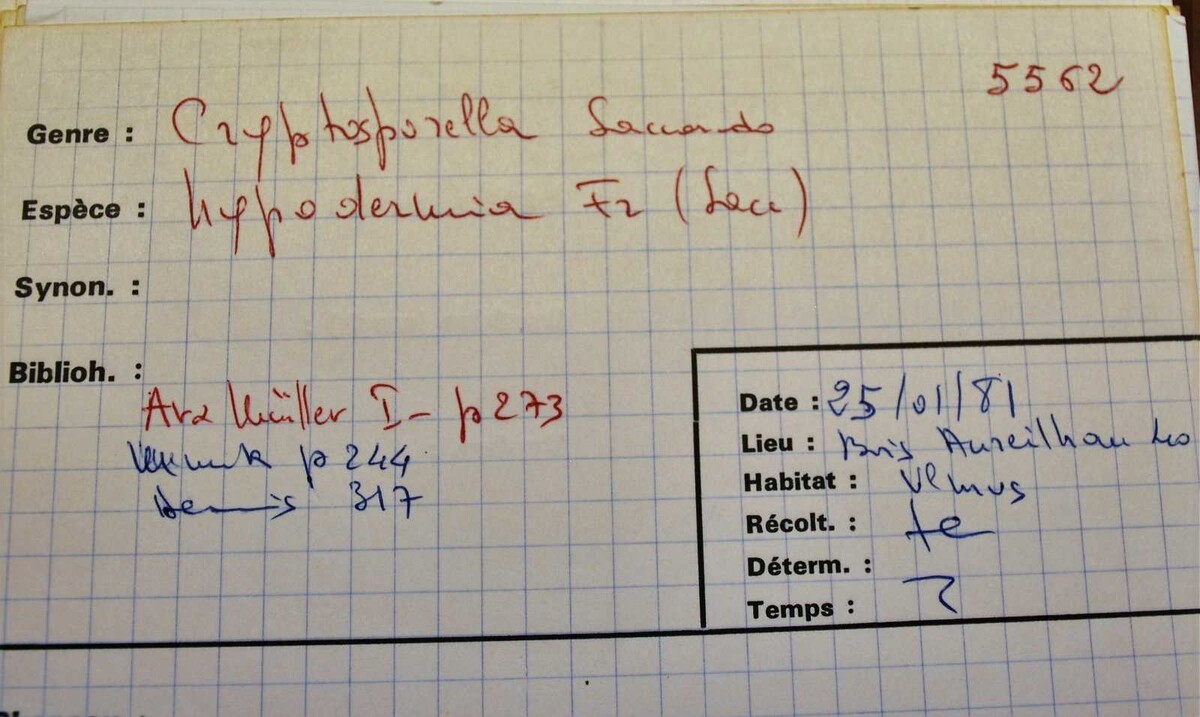 5562
Genre : Cryptosporella Saccardo
Espèce : hypodermia Fr (Sacc)
Synon. :
Biblioh. :
Arx Müller I - p 273
p 244
Dennis 317
Date : 25/01/81
Lieu : Bois Aureilhan 40
Habitat : Ulmus
Récolt. :
Déterm. :
Temps :